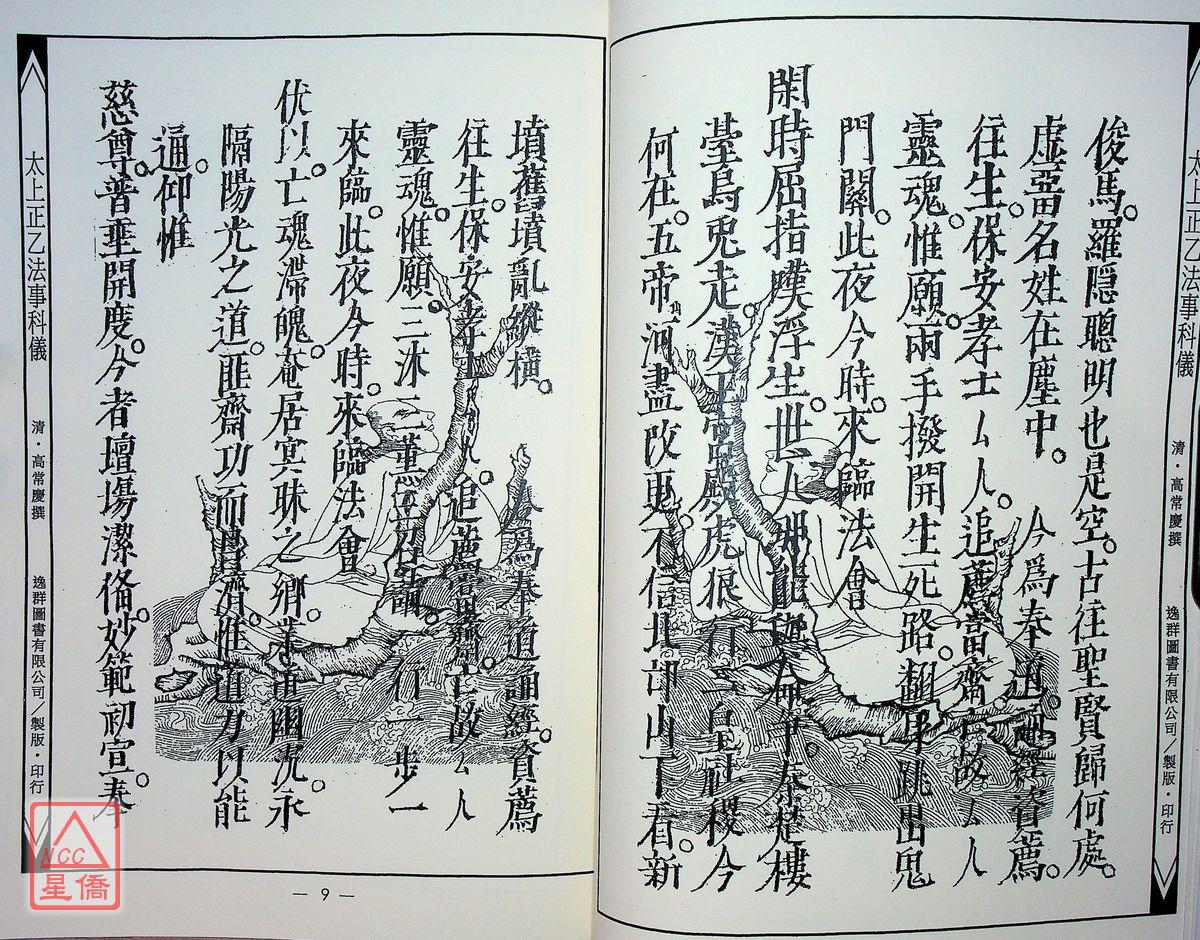 太上正乙法事科儀
清·高常慶撰
逸群圖書有限公司／製版·印行
俊馬。羅隱聰明也是空。古往聖賢歸何處。
虛留名姓在塵中。 今爲奉道誦經資薦。
往生。保安孝士厶人。追薦當齋亡故厶人
靈魂。惟願。兩手撥開生死路。翻身跳出鬼
門關。此夜今時。來臨法會
閑時屈指嘆浮生。世人那能與命爭。秦楚樓
臺烏兎走。漢王宮殿虎狼行。三皇社稷今
何在。五帝河盡改更。不信且 山下看。新
墳舊墳亂縱橫。 今爲奉道誦經。資薦
往生。保安孝士厶人。追薦當 亡故厶人
靈魂。惟願。三沐三薰 。一行一步一
來臨。此夜今時。來臨法會。
伏以。亡魂滯魄。奄居冥昧之鄉。 幽沉。永
隔陽光之道。匪齋功而 濟。惟道力以能
通。仰惟
慈尊。普垂開度。今者壇場潔俻。妙範初宣。奉
太上正乙法事科儀
清·高常慶撰
逸群圖書有限公司／製版·印行
— 9 —
NCC
星僑